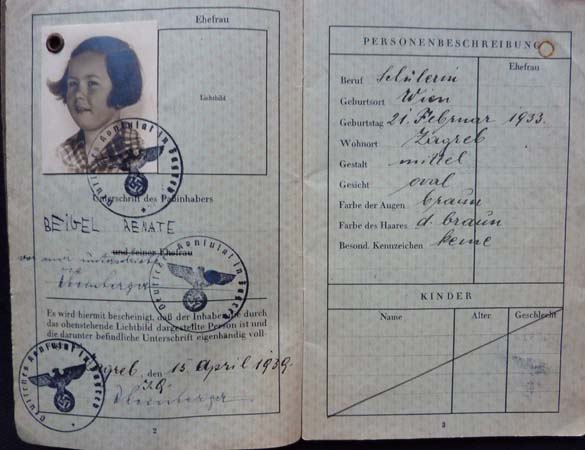 Ehefrau
Lichtbild
Deutsches Konsulat in Zagreb
Unterschrift des Paßinhabers
BEIGEL RENATE
und seiner Ehefrau
vor mir unterschrieben
Deutsches Konsulat in Zagreb
Es wird hiermit bescheinigt, daß der Inhaber die durch
das obenstehende Lichtbild dargestellte Person ist und
die darunter befindliche Unterschrift eigenhändig voll-
Zagreb, den 15 April 1939.
Deutsches Konsulat in Zagreb
2
PERSONENBESCHREIBUNG
Ehefrau
Beruf Schülerin
Geburtsort Wien
Geburtstag 21. Februar 1933.
Wohnort Zagreb
Gestalt mittel
Gesicht oval
Farbe der Augen braun
Farbe des Haares d. braun
Besond. Kennzeichen keine
KINDER
Name Alter Geschlecht
3